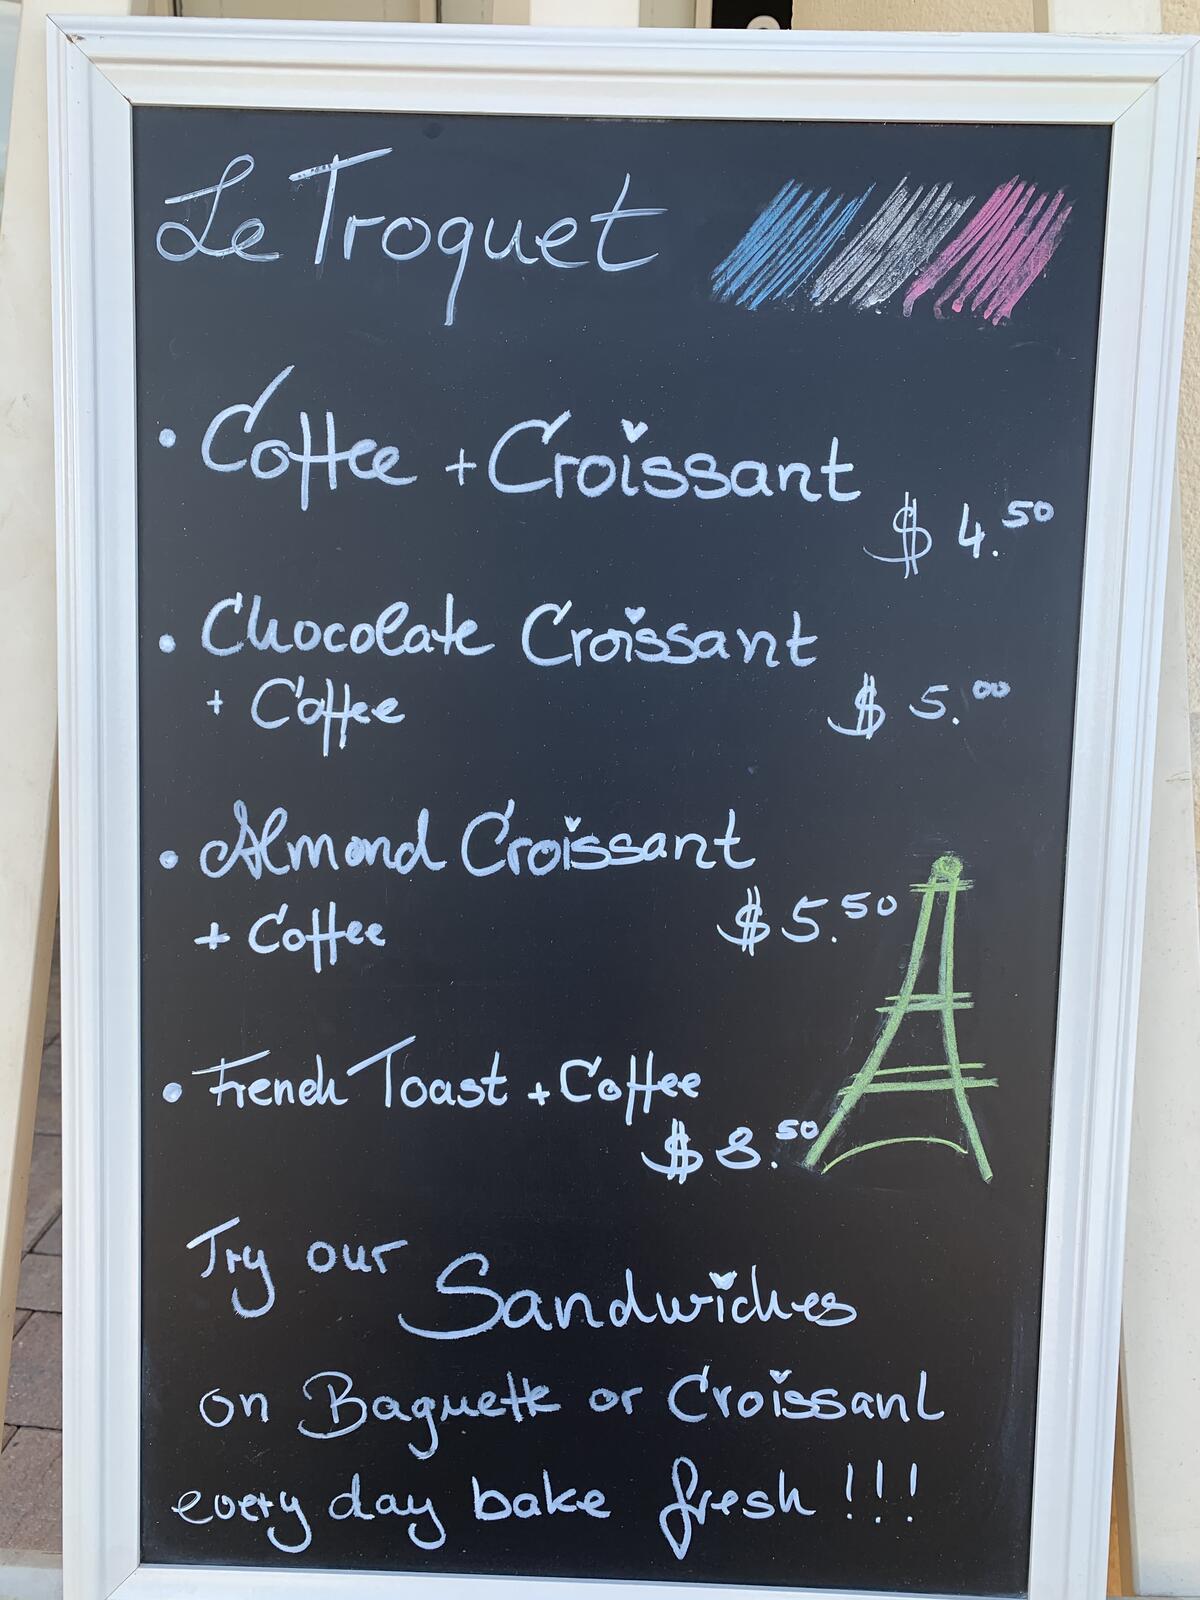 Le Troquet
• Coffee + Croissant
$ 4.50
• Chocolate Croissant
+ Coffee $ 5.00
• Almond Croissant
+ Coffee $ 5.50
• French Toast + Coffee
$ 8.50
Try our Sandwiches
on Baguette or Croissant
every day bake fresh !!!